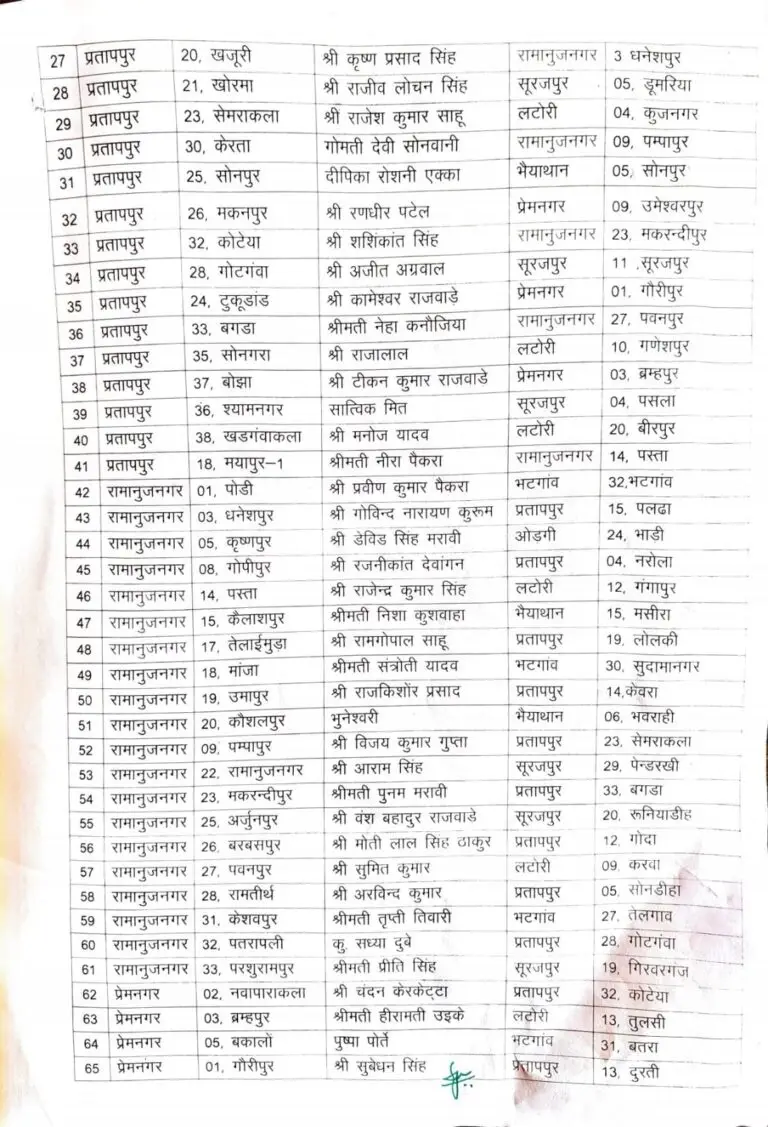 27 प्रतापपुर 20, खजूरी श्री कृष्ण प्रसाद सिंह रामानुजनगर 3 धनेशपुर
28 प्रतापपुर 21, खोरमा श्री राजीव लोचन सिंह सूरजपुर 05, डूमरिया
29 प्रतापपुर 23, सेमराकला श्री राजेश कुमार साहू लटोरी 04, कुजनगर
30 प्रतापपुर 30, केरता गोमती देवी सोनवानी रामानुजनगर 09, पम्पापुर
31 प्रतापपुर 25, सोनपुर दीपिका रोशनी एक्का भैयाथान 05, सोनपुर
32 प्रतापपुर 26, मकनपुर श्री रणधीर पटेल प्रेमनगर 09, उमेश्वरपुर
33 प्रतापपुर 32, कोटेया श्री शशिकांत सिंह रामानुजनगर 23, मकरन्दीपुर
34 प्रतापपुर 28, गोटगंवा श्री अजीत अग्रवाल सूरजपुर 11 ,सूरजपुर
35 प्रतापपुर 24, टुकूडांड श्री कामेश्वर राजवाड़े प्रेमनगर 01, गौरीपुर
36 प्रतापपुर 33, बगडा श्रीमती नेहा कनौजिया रामानुजनगर 27, पवनपुर
37 प्रतापपुर 35, सोनगरा श्री राजालाल लटोरी 10, गणेशपुर
38 प्रतापपुर 37, बोझा श्री टीकन कुमार राजवाडे प्रेमनगर 03, ब्रम्हपुर
39 प्रतापपुर 36, श्यामनगर सात्विक मित सूरजपुर 04, पसला
40 प्रतापपुर 38, खडगंवाकला श्री मनोज यादव लटोरी 20, बीरपुर
41 प्रतापपुर 18, मयापुर–1 श्रीमती नीरा पैकरा रामानुजनगर 14, पस्ता
42 रामानुजनगर 01, पोडी श्री प्रवीण कुमार पैकरा भटगांव 32,भटगांव
43 रामानुजनगर 03, धनेशपुर श्री गोविन्द नारायण कुरूम प्रतापपुर 15, पलढा
44 रामानुजनगर 05, कृष्णपुर श्री डेविड सिंह मरावी ओड़गी 24, भाड़ी
45 रामानुजनगर 08, गोपीपुर श्री रजनीकांत देवांगन प्रतापपुर 04, नरोला
46 रामानुजनगर 14, पस्ता श्री राजेन्द्र कुमार सिंह लटोरी 12, गंगापुर
47 रामानुजनगर 15, कैलाशपुर श्रीमती निशा कुशवाहा भैयाथान 15, मसीरा
48 रामानुजनगर 17, तेलाईमुडा श्री रामगोपाल साहू प्रतापपुर 19, लोलकी
49 रामानुजनगर 18, मांजा श्रीमती संत्रोती यादव भटगांव 30, सुदामानगर
50 रामानुजनगर 19, उमापुर श्री राजकिशोर प्रसाद प्रतापपुर 14,केवरा
51 रामानुजनगर 20, कौशलपुर भुनेश्वरी भैयाथान 06, भवराही
52 रामानुजनगर 09, पम्पापुर श्री विजय कुमार गुप्ता प्रतापपुर 23, सेमराकला
53 रामानुजनगर 22, रामानुजनगर श्री आराम सिंह सूरजपुर 29, पेन्डरखी
54 रामानुजनगर 23, मकरन्दीपुर श्रीमती पुनम मरावी प्रतापपुर 33, बगडा
55 रामानुजनगर 25, अर्जुनपुर श्री वंश बहादुर राजवाडे सूरजपुर 20, रूनियाडीह
56 रामानुजनगर 26, बरबसपुर श्री मोती लाल सिंह ठाकुर प्रतापपुर 12, गोदा
57 रामानुजनगर 27, पवनपुर श्री सुमित कुमार लटोरी 09, करवा
58 रामानुजनगर 28, रामतीर्थ श्री अरविन्द कुमार प्रतापपुर 05, सोनडीहा
59 रामानुजनगर 31, केशवपुर श्रीमती तृप्ती तिवारी भटगांव 27, तेलगाव
60 रामानुजनगर 32, पतरापली कु. सध्या दुबे प्रतापपुर 28, गोटगंवा
61 रामानुजनगर 33, परशुरामपुर श्रीमती प्रीति सिंह सूरजपुर 19, गिरवरगज
62 प्रेमनगर 02, नवापाराकला श्री चंदन केरकेट्टा प्रतापपुर 32, कोटेया
63 प्रेमनगर 03, ब्रम्हपुर श्रीमती हीरामती उइके लटोरी 13, तुलसी
64 प्रेमनगर 05, बकालों पुष्पा पोर्ते भटगांव 31, बतरा
65 प्रेमनगर 01, गौरीपुर श्री सुबेधन सिंह प्रतापपुर 13, दुरती